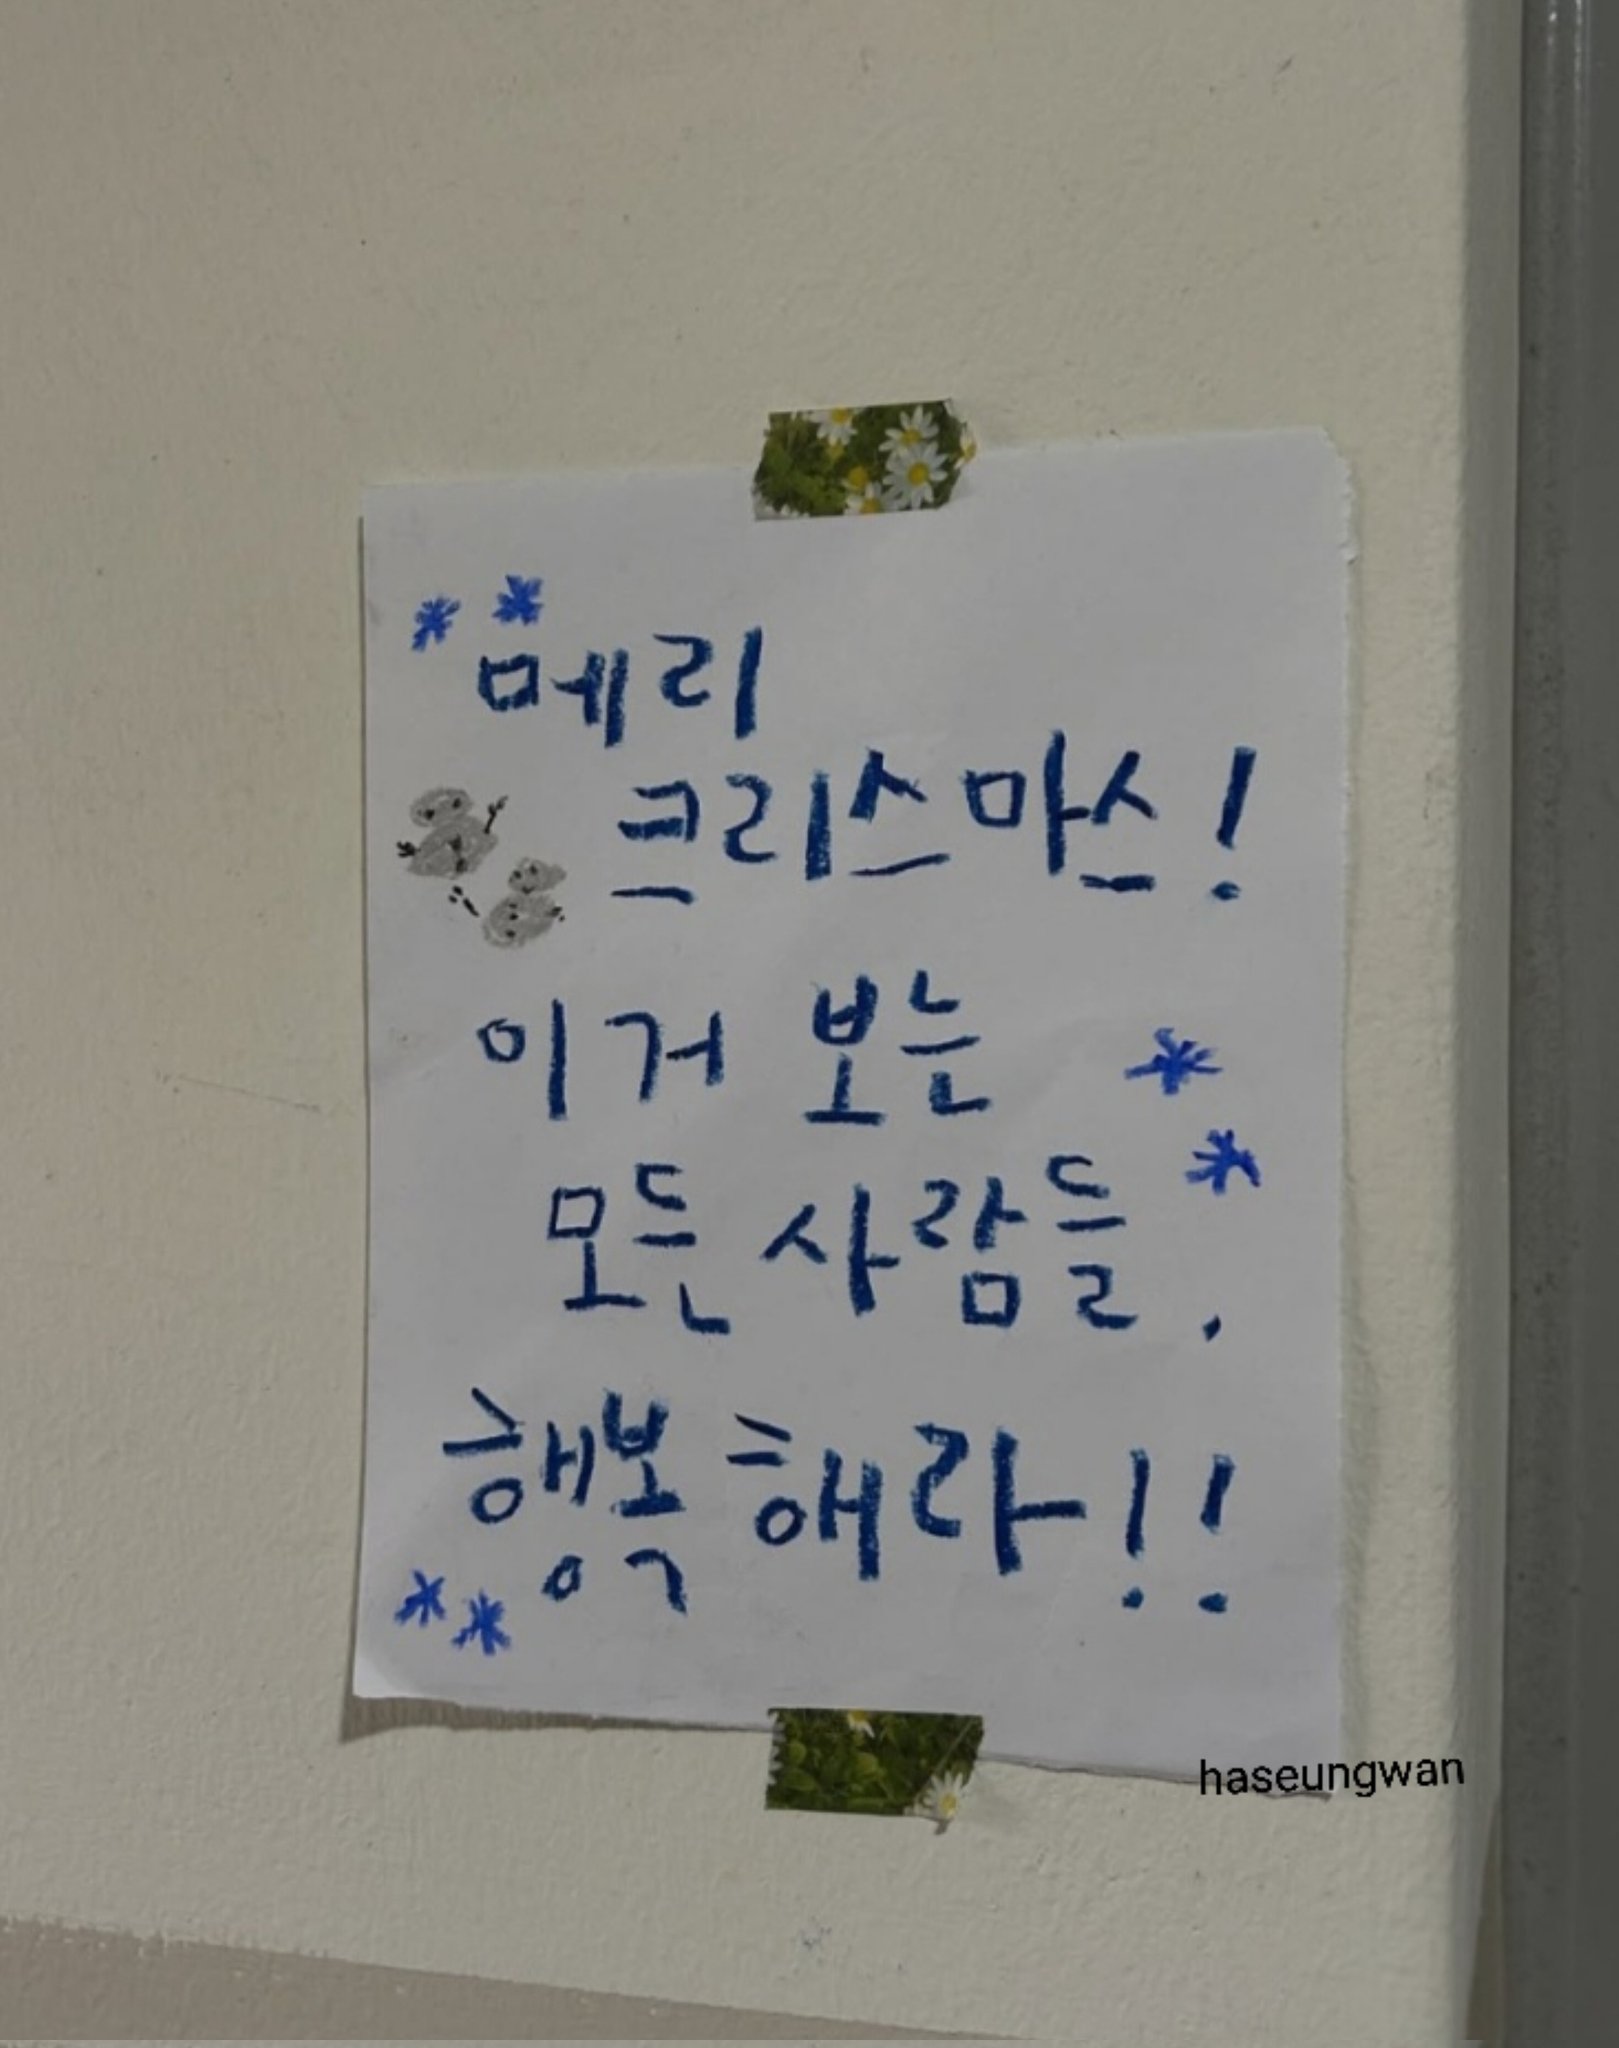 메리
크리스마스!
이거 보는
모든 사람들.
행복해라!!
haseungwan